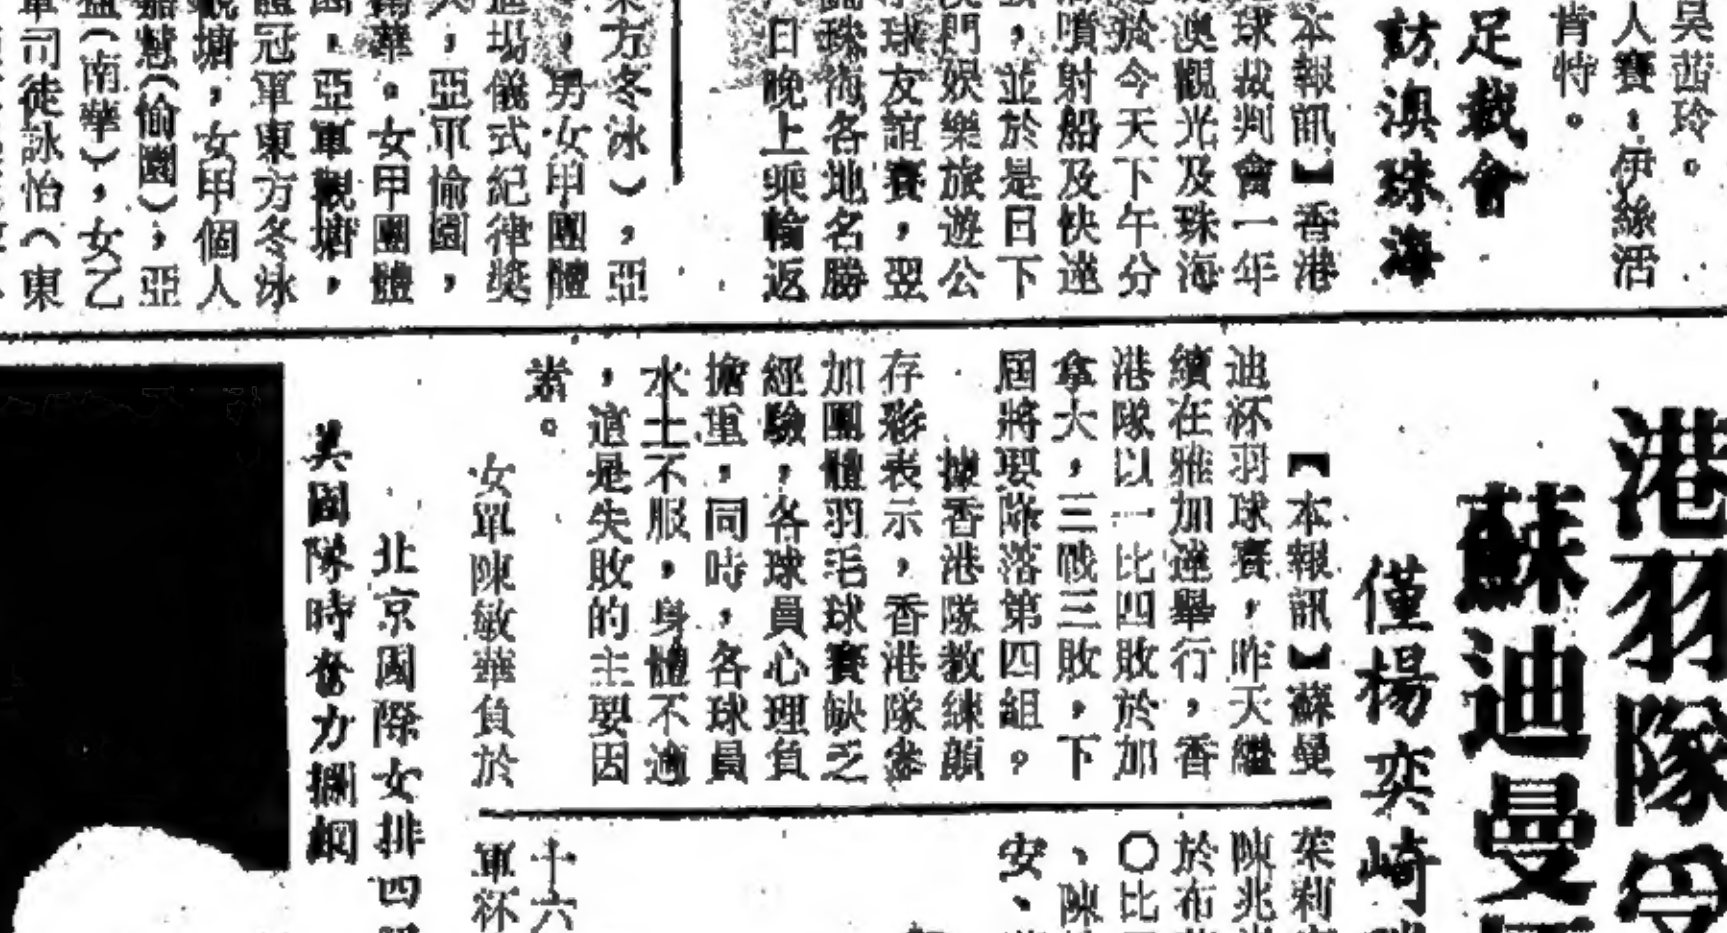 吳茵玲。
人賽:伊絲活
肯特。
足裁會
訪澳珠海
本報訊】香港
球裁判會一年
澳觀光及珠海
於今天下午分
噴射船及快達
,並於是日下
澳門娛樂旅遊公
球友誼賽,翌
珠海各地名勝
日晚上乘輪返
東方冬泳),亞
,男女甲團體
進場儀式紀律獎
,亞軍愉園,
南華。女甲團體
,亞軍觀塘,
冠軍東方冬泳
觀塘,女甲個人
嘉慧(愉園),亞
(南華),女乙
軍司徒詠怡(東
港羽隊受
蘇迪曼
僅楊奕崎
【本報訊】蘇曼
迪杯羽球賽,昨天繼
續在雅加達舉行,香
港隊以一比四敗於加
拿大,三戰三敗,下
屆將要降落第四組。
據香港隊教練顏
存彩表示,香港隊參
加團體羽毛球賽缺乏
經驗,各球員心理負
擔重,同時,各球員
水土不服,身體不適
,這是失敗的主要因
素。
女單陳敏華負於
茱莉
陳兆
於布
〇比
、陳
安、
十六
軍杯
北京國際女排四
美國隊時奮力攔網